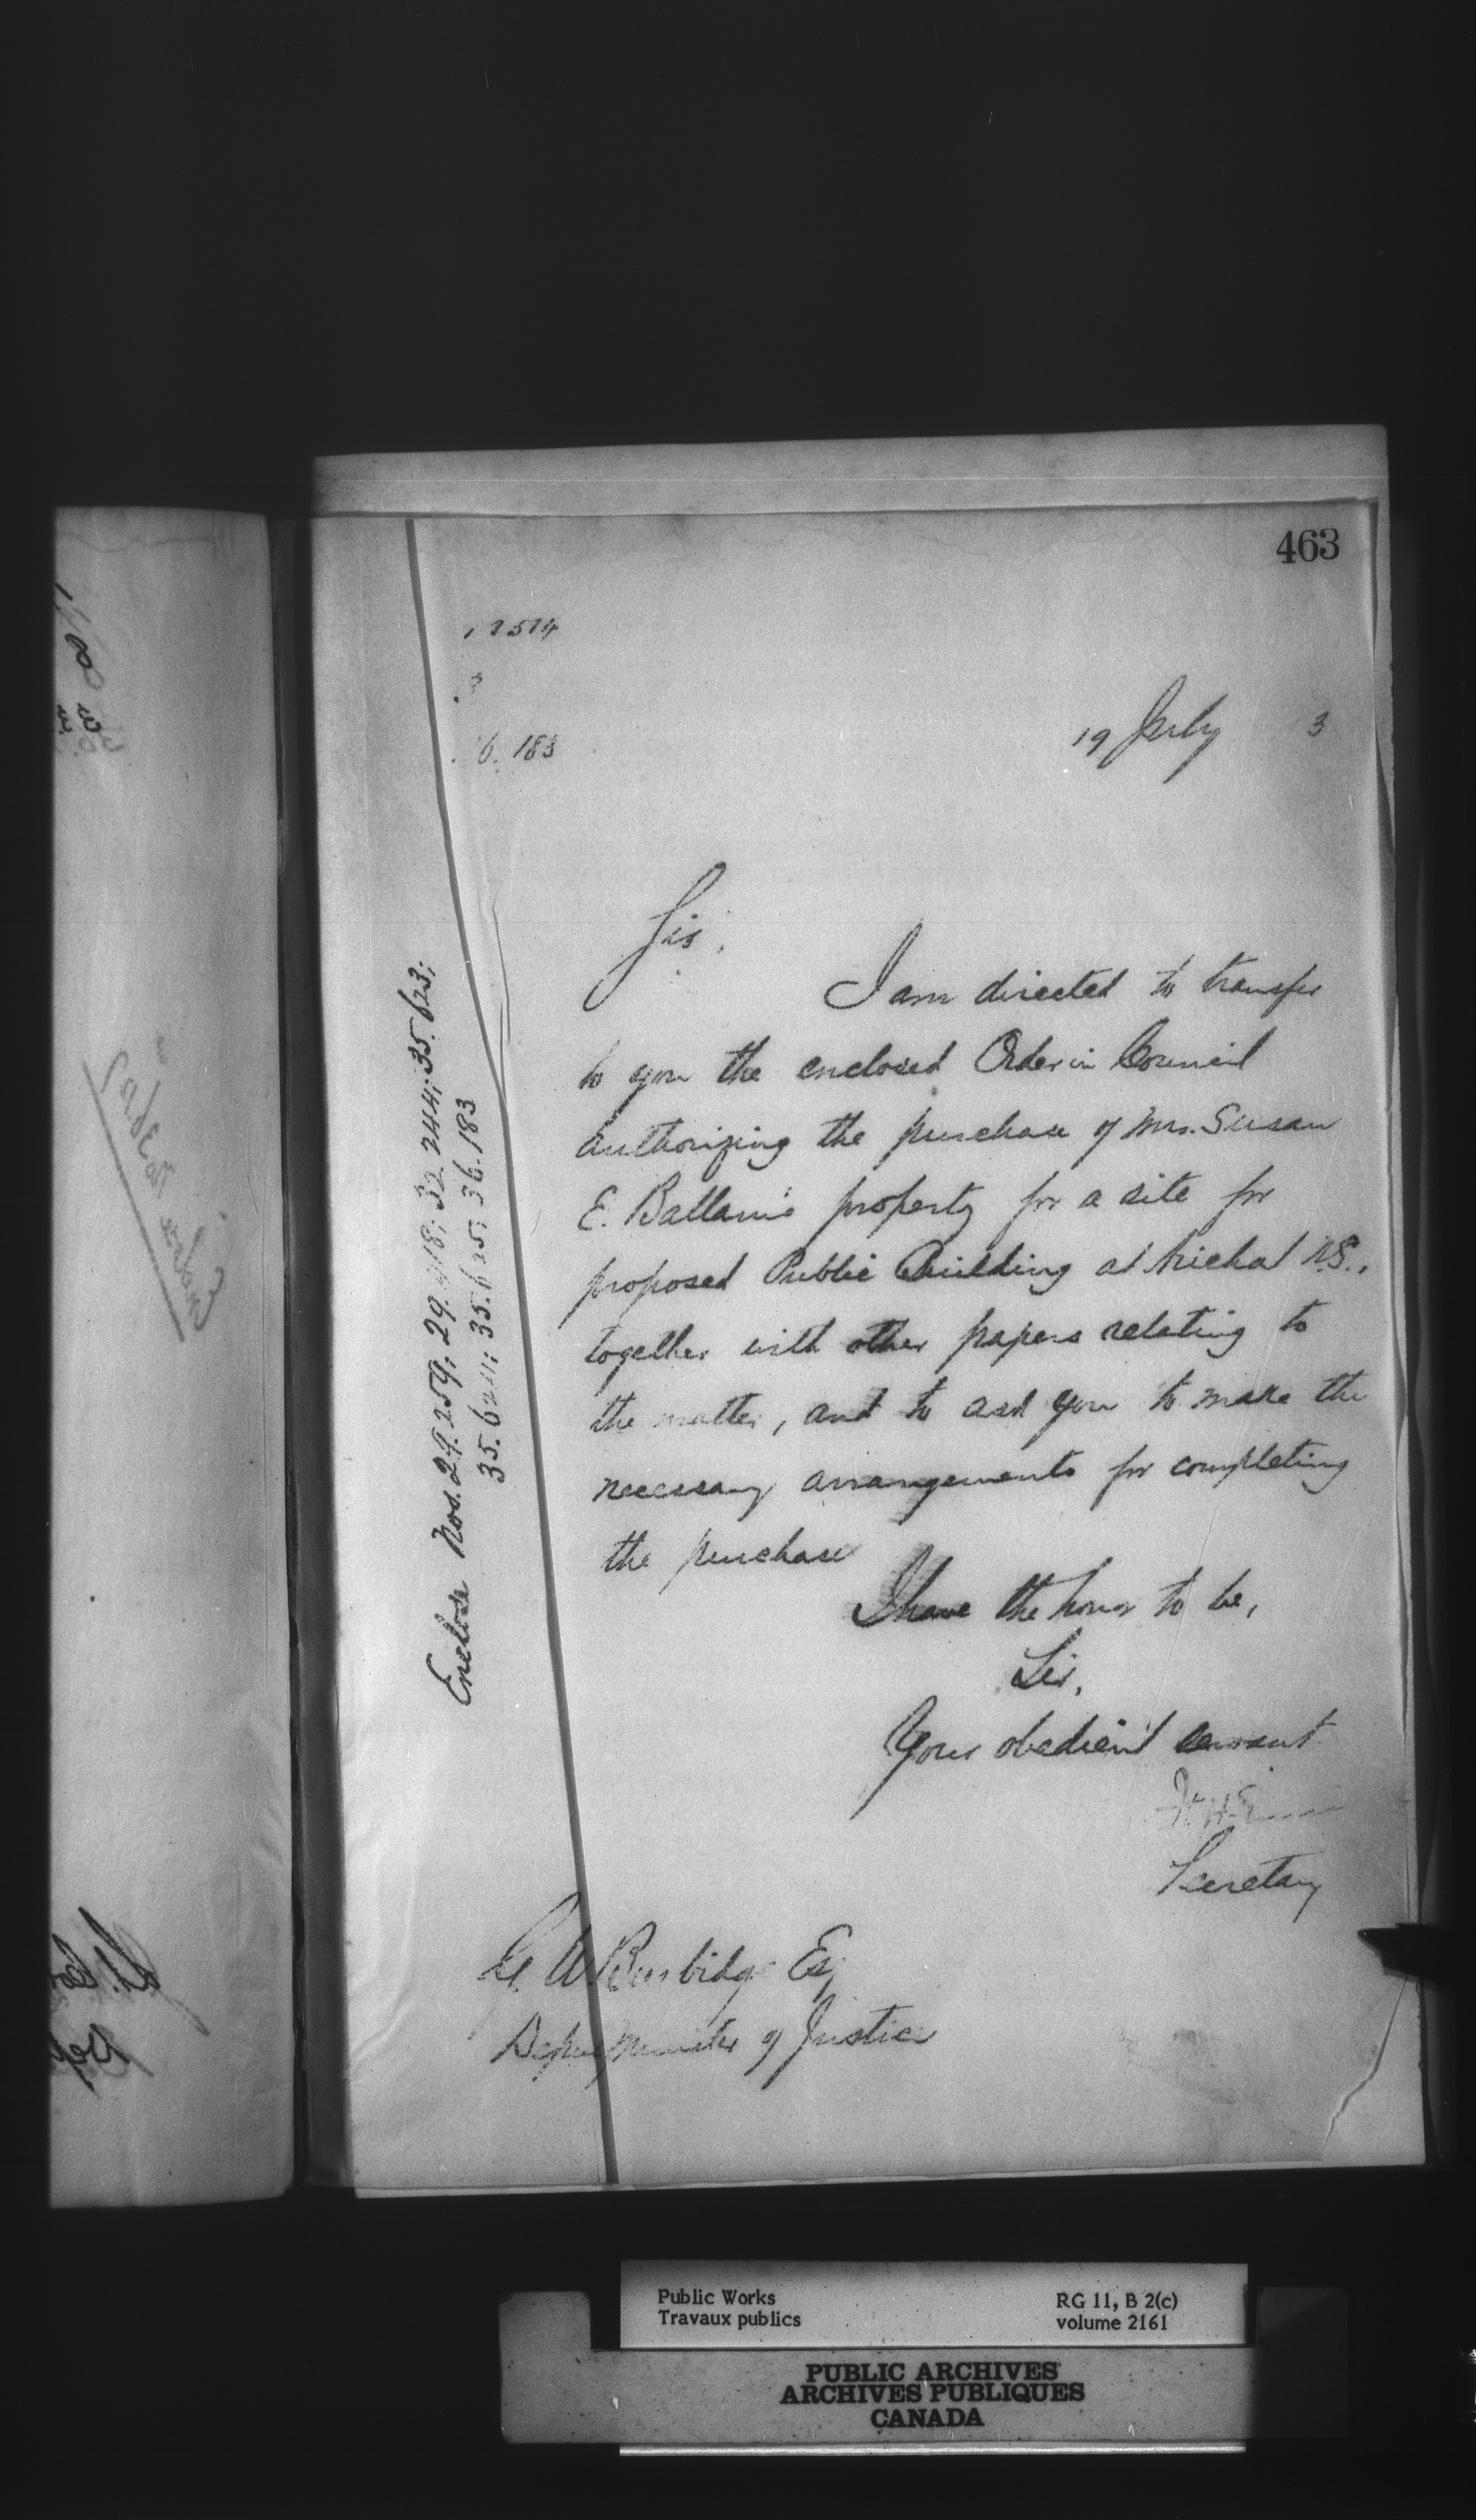 463
19 July 3
36.183
Sir,
I am directed to transfer
to you the enclosed Order in Council
authorizing the purchase of Mrs. Susan
E. Ballam's property for a site for
proposed Public Building at Arichat N.S.,
together with other papers relating to
the matter, and to ask you to make the
necessary arrangements for completing
the purchase
I have the honor to be,
Sir,
Your obedient servant
Secretary
G. W. Burbidge Esq
Deputy Minister of Justice
Enclose Nos. 29.259; 29.418; 32.244; 35.623;
35.624; 35.625; 36.183
Public Works
Travaux publics
RG 11, B 2(c)
volume 2161
PUBLIC ARCHIVES
ARCHIVES PUBLIQUES
CANADA